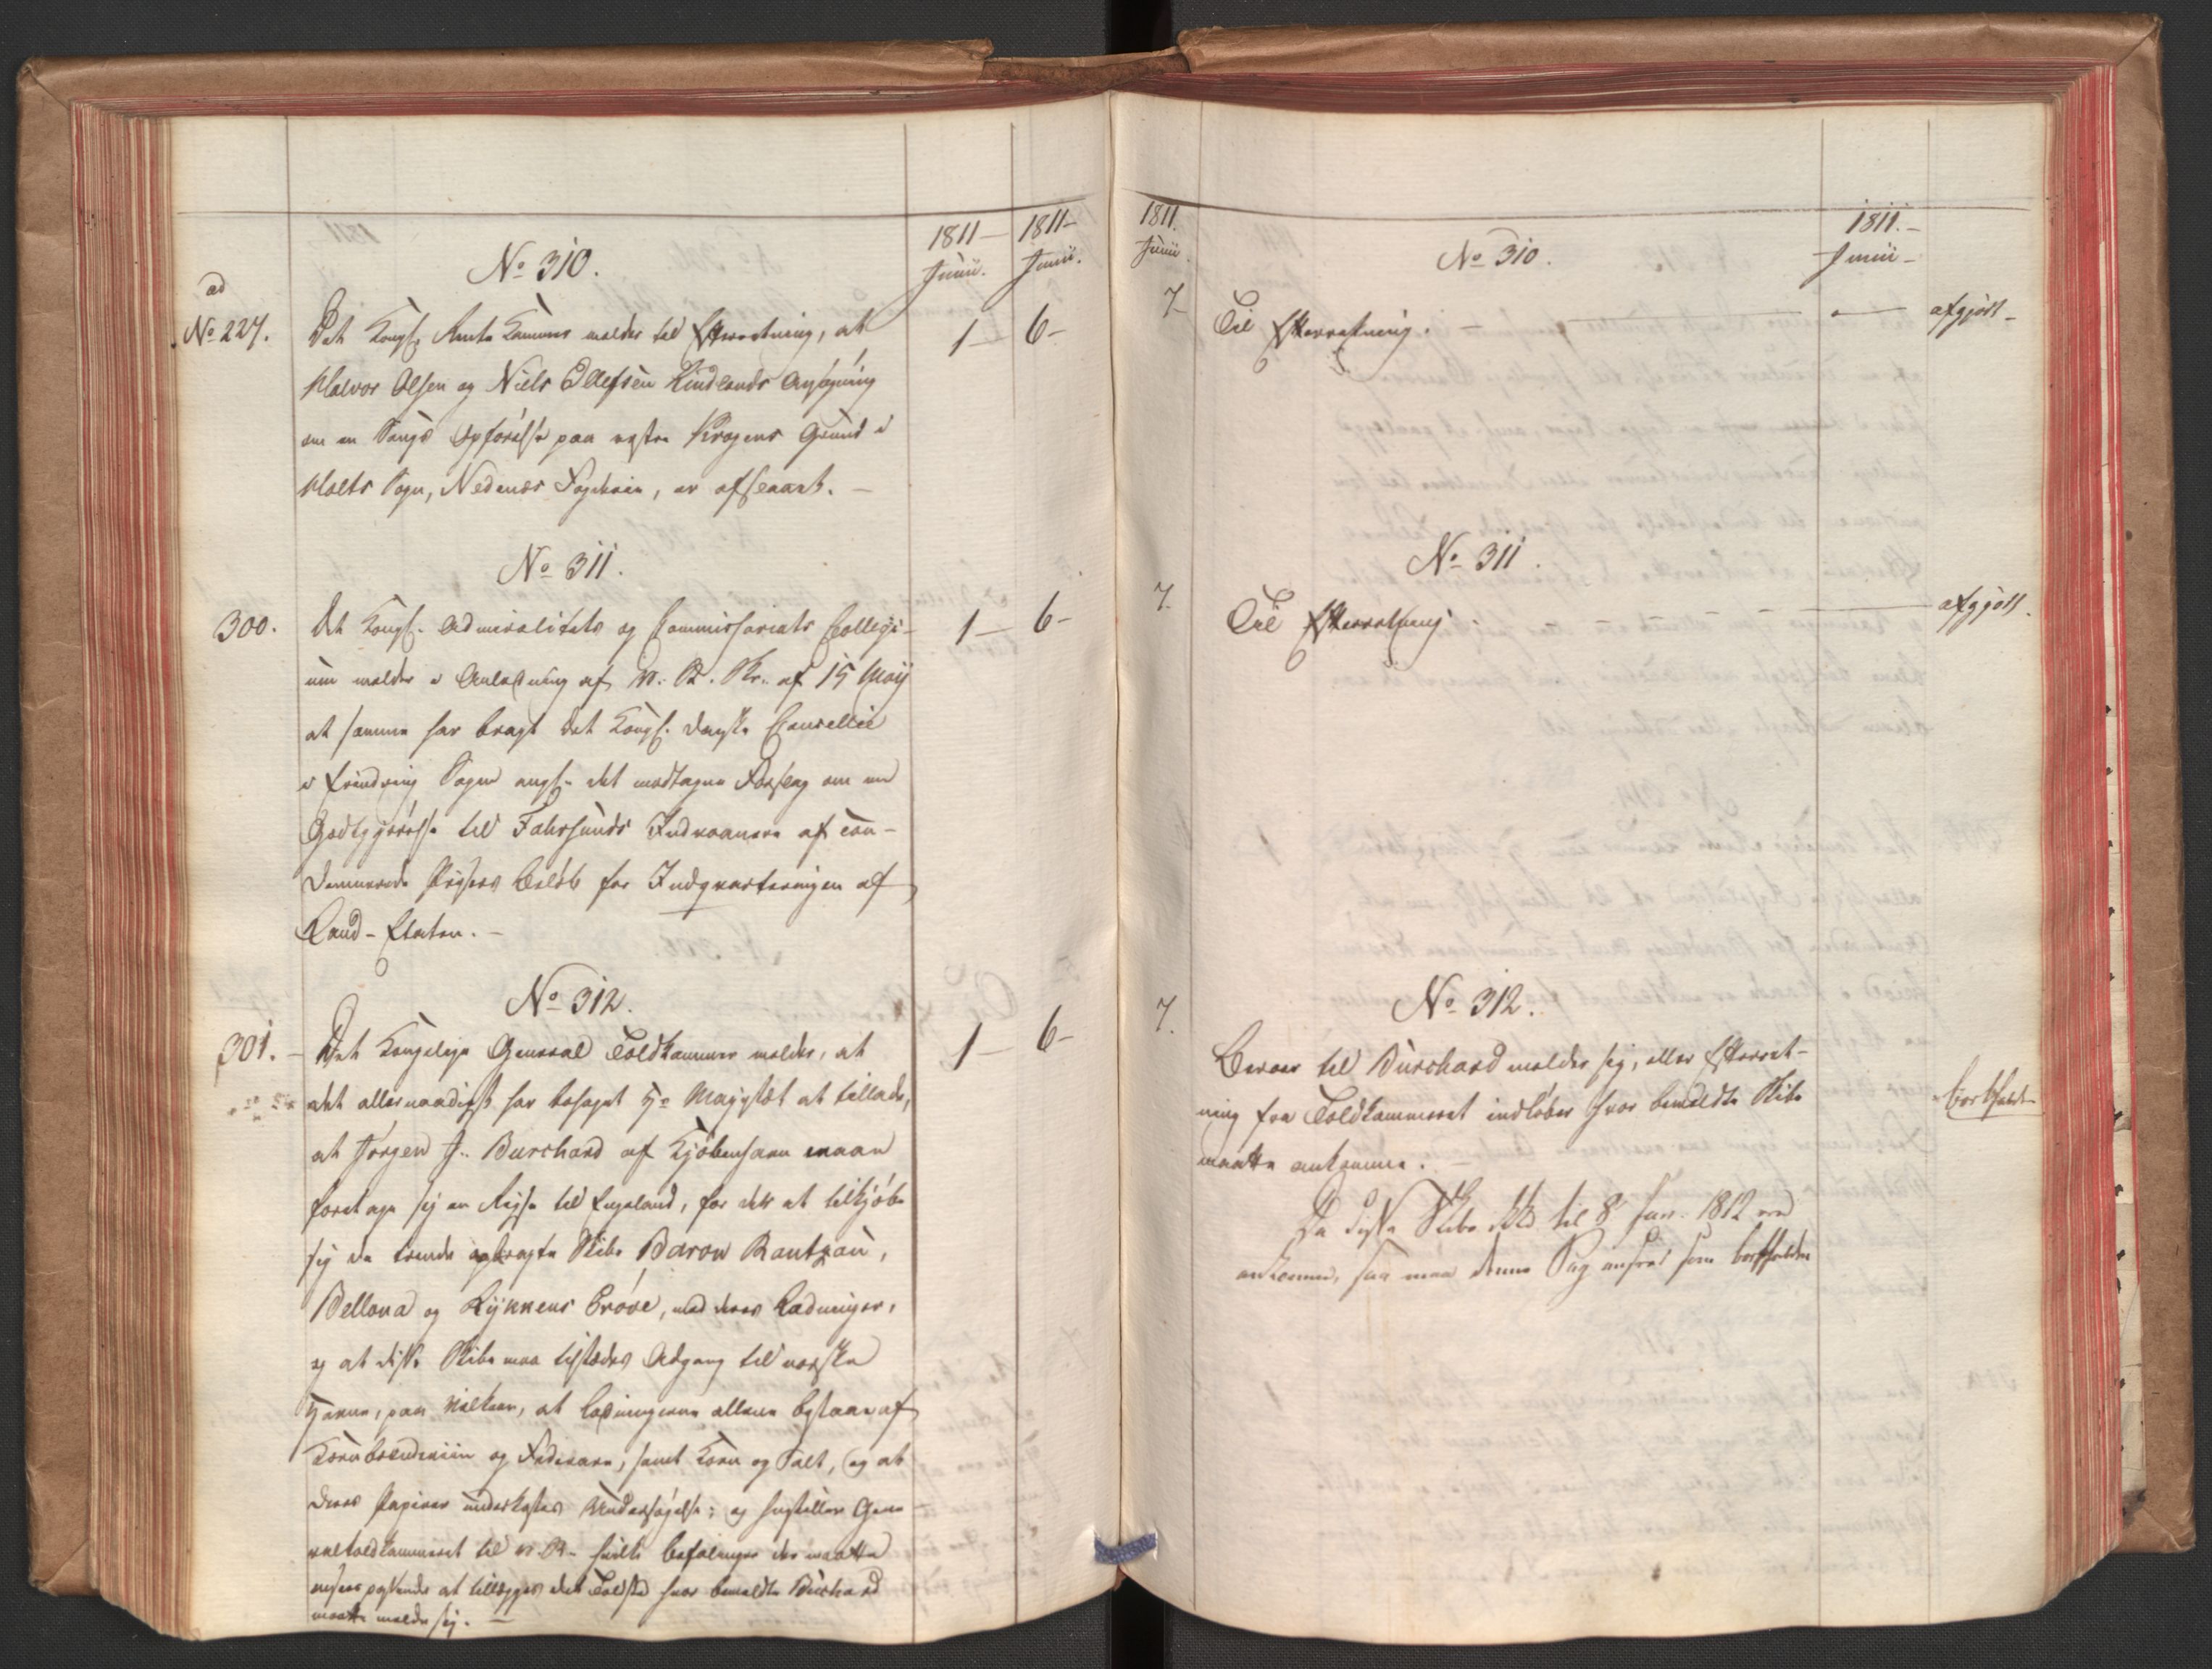 1811 –
Junii.
1811 –
Junii.
No 310.
ad
No 227.
Det Kongl. Rente Kammer melder til Efterretning, at
1 –
6 –
Halvor Olsen og Niels Ellefsen Kindlands Ansøgning
om en Saugs Opførelse paa vestre Krogens Grund i
Holts Sogn, Nedenæs Fogderie, er afslaaet. –
No 311.
300.
Det Kongl. Admiralitets og Commissariats Collegi-
1 –
6 –
um melder i Anledning af R. C. Skr. af 15 Maij
at samme har bragt det Kongl. danske Cancellie
i Erindring Sagen angl. det modtagne Forslag om en
Godtgjørelse til Fahrsunds Indvaanere af con-
demnerede Prisers Beløb for Indqvarteringen af
Land-Etaten. –
No 312.
301. –
Det Kongelige General Toldkammer melder, at
1 –
6 –
det allernaadigst har behaget Hs Majestæt at tillade,
at Jørgen J. Burchard af Kjøbenhavn maae
foretage sig en Rejse til Engeland, for der at tilkjøbe
sig de trende opbragte Skibe Baron Rantzau,
Bellona og Lykkens Prøve, med deres Ladninger,
og at disse Skibe maa tilstædes Adgang til norske
Havne, paa Vilkaar, at Ladningerne allene bestaae af
Kornbrændeviin og Fedevare, samt Korn og Salt, og at
deres Papirer underkastes Undersøgelse; og henstiller Gene-
raltoldkammeret til R. C. hvilke Befalinger der maatte
ansees passende at tillægges det Toldsted hvor bemeldte Burchard
maatte melde sig. –
1811.
Junii
No 310.
1811. –
Junii –
7
Til Efterretning. –
afgjort –
No 311.
7.
Til Efterretning.
afgjort.
No 312.
7.
Beroer til Burchard melder sig, eller Efterret-
ning fra Toldkammeret indløber hvor bemeldte Skibe
maatte ankomme. –
bortfaldt
Da disse Skibe ikke til 8 Jan. 1812 ere
ankomne, saa maa denne Sag ansees som bortfalden